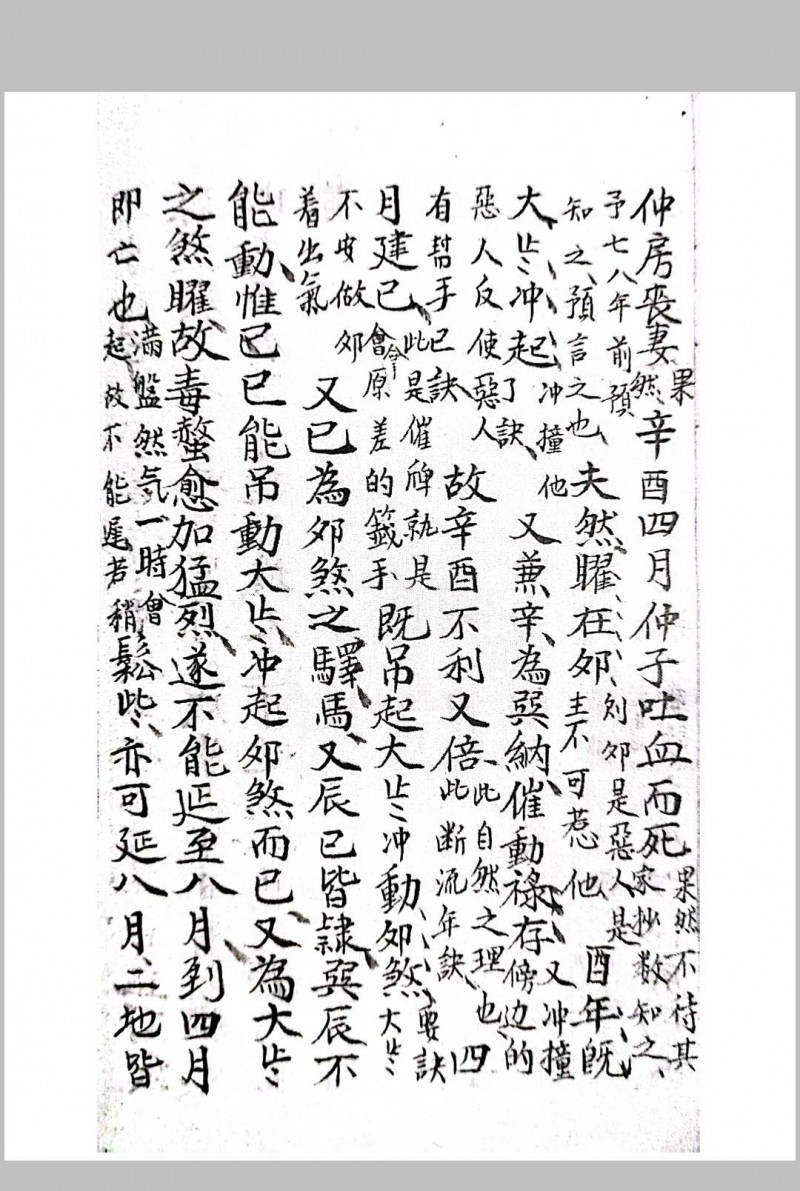 仲房喪妻果然、辛酉四月仲子吐血而死果然不待其家抄数知之、
予七八年前預知之、預言之也、夫然曜在夘則夘是惡人是主不可惹他酉年既
大止〻冲起冲撞他了訣、又兼辛為巽納、催動禄存、又冲撞傍边的
惡人反使惡人有幫手已訣故辛酉不利又倍、此自然之理也、此断流年訣四
月建巳、此是催牌就是會原差的籤手既吊起大止〻冲動夘煞、要訣大止〻
不安做夘着出氣又巳為夘煞之驛馬、又辰巳皆隷巽辰不
能動、惟巳巳能吊動大止〻冲起夘煞而已、又為大止〻
之煞曜、故毒螫愈加猛烈、遂不能延至八月、到四月
即亡也、滿盤然气一時會起故不能遲若稍鬆些、亦可延八月、二地皆